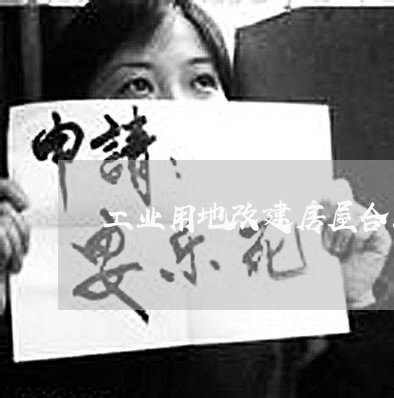 申請：
工业用地改建房屋合
乐死